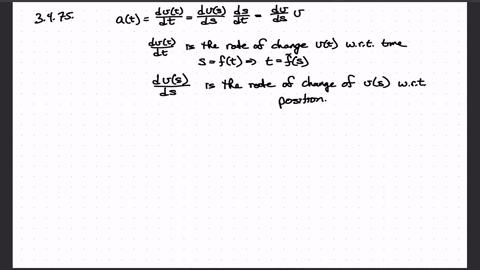 3.4.75. a(t) = dv(t)/dt = dv(s)/ds ds/dt = dv/ds v
dv(t)/dt is the rate of change v(t) w.r.t. time
s = f(t) ⇒ t = f̃(s)
dv(s)/ds is the rate of change of v(s) w.r.t
position.